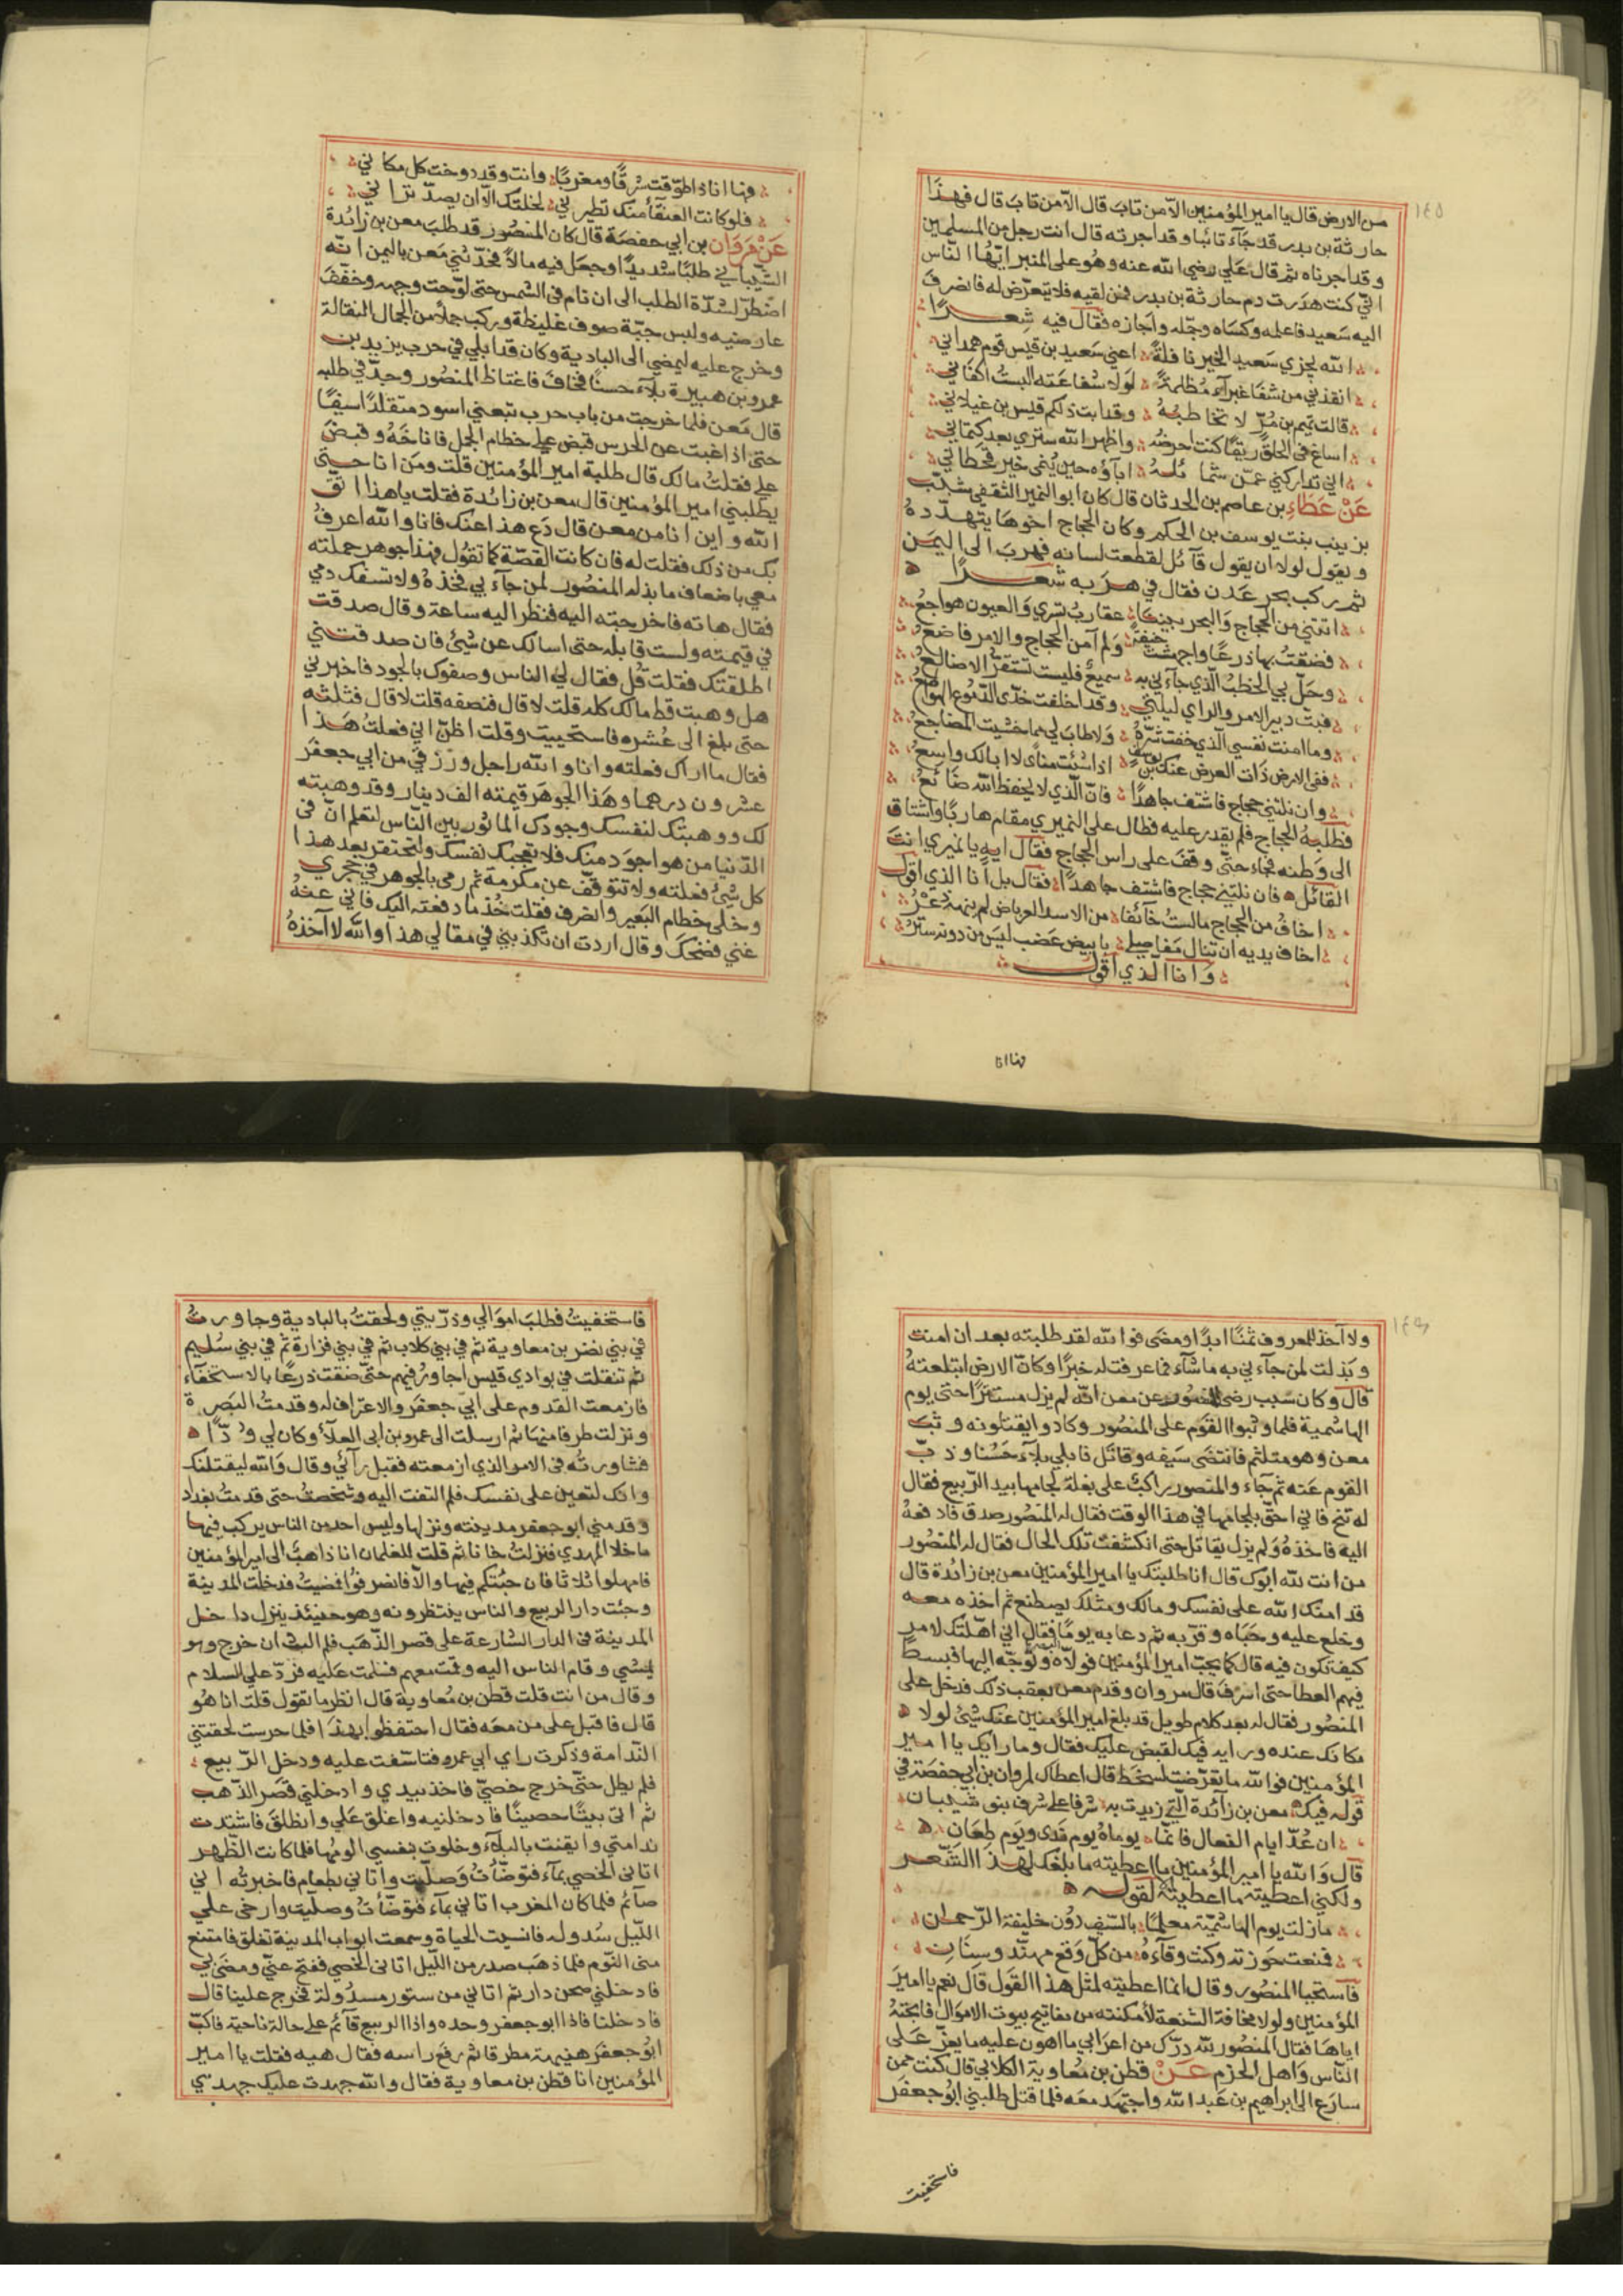 ١٤٥
من الارض قال يا امير المؤمنين الا من تاب قال الا من تاب قال فهذا
حارثة بن بدر قد جآء تائبا وقد اجرته قال انت رجل من المسلمين
وقد اجرناه ثم قال علي رضي الله عنه وهو على المنبر ايها الناس
اني كنت هدرت دم حارثة بن بدر فمن لقيه فلا يتعرض له فانصرف
اليه سعيد فاعلمه وكساه وحمله واجازه فقال فيه شعرا
الله يجزي سعيد الخير نافلة اعني سعيد بن قيس قوم همداني
انقذني من شفا غبرآء مظلمة لولا شفاعته البست اكفاني
قالت تميم بن مر لا تخاطبه وقد ابت ذلكم قيس بن غيلاني
اساغ في الحلق ريقا كنت احرضه واظهر الله ستري بعد كتماني
اني تداركني عف شمائله اباؤه حين ينمى خير قحطاني
عن عطاء بن عاصم بن الحدثان قال كان ابو النمير الثقفي شبب
بزينب بنت يوسف بن الحكم وكان الحجاج اخوها يتهدده
ويقول لولا ان يقول قآئل لقطعت لسانه فهرب الى اليمن
ثم ركب بحر عدن فقال في هربه شعرا
اتتني من الحجاج والبحر بيننا عقارب تسري والعيون هواجع
فضقت بها ذرعا واجهشت خيفة ولم آمن الحجاج والامر فاضع
وحل بي الخطب الذي جآءني به سميع فليست تستقر الاضالع
فبت دبير الامر والراي ليلتي وقد اخلفت خدى الدموع الهوامع
وما امنت نفسي الذي خفت شره ولا طاب لي مما خشيت المضاجع
ففي الارض ذات العرض عنك بن يوسف اذا شئت مناى لا ابالك واسع
وان نلتني حجاج فاشتف جاهدا فان الذي لا يحفظ الله ضائع
فطلبه الحجاج فلم يقدر عليه فطال على النميري مقام هاربا واشتاق
الى وطنه فجاء حتى وقف على راس الحجاج فقال ايه يا نميري انت
القائل فان نلتني حجاج فاشتف جاهدا فقال بل انا الذي اقول
اخاف من الحجاج مالست خآئفا من الاسد العرباض لم ينهه ذعر
اخاف يديه ان تنال مفاصلي بابيض عضب ليس من دونه ستر
وانا الذي اقول
فهاانا
فها انا ذا طوفت شرقا ومغربا وانت وقد دوخت كل مكاني
فلو كانت العنقآء منك تطير بي لخلتك الا ان يصد تراني
عن مروان بن ابي حفصة قال كان المنصور قد طلب معن بن زائدة
الشيباني طلبا شديدا وجعل فيه مالا فحدثني معن باليمن انه
اضطر لشدة الطلب الى ان نام في الشمس حتى لوحت وجهه وخفف
عارضيه ولبس جبة صوف غليظة وركب جملا من الجمال النقالة
وخرج عليه ليمضي الى البادية وكان قد ابلي في حرب يزيد بن
عمرو بن هبيرة بلآء حسنا فخاف فاغتاظ المنصور وجد في طلبه
قال معن فلما خرجت من باب حرب تبعني اسود متقلدا سيفا
حتى اذا غبت عن الحرس قبض على خطام الجمل فاناخه وقبض
علي فقلت مالك قال طلبة امير المؤمنين قلت ومن انا حتى
يطلبني امير المؤمنين قال معن بن زائدة فقلت يا هذا اتق
الله واين انا من معن قال دع هذا عنك فانا والله اعرف
بك من ذلك فقلت له فان كانت القصة كما تقول فهذا جوهر حملته
معي باضعاف ما بذله المنصور لمن جآء بي فخذه ولا تسفك دمي
فقال هاته فاخرجته اليه فنظر اليه ساعة وقال صدقت
في قيمته ولست قابله حتى اسالك عن شيئ فان صدقتني
اطلقتك فقلت قل فقال لي الناس وصفوك بالجود فاخبرني
هل وهبت قط مالك كله قلت لا قال فنصفه قلت لا قال فثلثه
حتى بلغ الى عشره فاستحييت وقلت اظن اني فعلت هذا
فقال ما اراك فعلته وانا والله راجل ورزقي من ابي جعفر
عشرون درهما وهذا الجوهر قيمته الف دينار وقد وهبته
لك ووهبتك لنفسك وجودك الماثور بين الناس لتعلم ان في
الدنيا من هو اجود منك فلا تعجبك نفسك ولتحتقر بعد هذا
كل شيئ فعلته ولا تتوقف عن مكرمة ثم رمى بالجوهر في حجري
وخلى خطام البعير وانصرف فقلت خذ ما دفعته اليك فاني عنه
غني فضحك وقال اردت ان تكذبني في مقالي هذا والله لا آخذه
١٤٦
ولا آخذ لمعروف ثمنا ابدا ومضى فوالله لقد طلبته بعد ان امنت
وبذلت لمن جآءني به ما شآء فما عرفت له خبرا وكان الارض ابتلعته
قال وكان سبب رضى المنصور عن معن انه لم يزل مستترا حتى يوم
الهاشمية فلما وثبوا القوم على المنصور وكادوا يقتلونه وثب
معن وهو متلثم فانتضى سيفه وقاتل فابلي بلآء حسنا وذب
القوم عنه ثم جآء والمنصور راكب على بغلة لجامها بيد الربيع فقال
له تنح فاني احق بلجامها في هذا الوقت فقال له المنصور صدق فادفعه
اليه فاخذه ولم يزل يقاتل حتى انكشفت تلك الحال فقال له المنصور
من انت لله ابوك قال انا طلبتك يا امير المؤمنين معن بن زائدة قال
قد امنك الله على نفسك ومالك ومثلك يصطنع ثم اخذه معه
وخلع عليه وحباه وقربه ثم دعا به يوما فقال اني اهلتك لامر
كيف تكون فيه قال كما يحب امير المؤمنين فولاه اليمن وتوجه اليها فبسط
فيهم العطا حتى اسرف قال مروان وقدم معن بعقب ذلك فدخل على
المنصور فقال له بعد كلام طويل قد بلغ امير المؤمنين عنك شيئ لولا
مكانك عنده ورايه فيك لقبض عليك فقال وما رايك يا امير
المؤمنين فوالله ما تعرضت لسخط قال اعطاك لمروان بن ابي حفصة في
قوله فيك معن بن زائدة التي زيدت به شرفا على شرف بنى شيبان
ان عد ايام الفعال فانما يوماه يوم ندى ويوم طعان
قال والله يا امير المؤمنين ما اعطيته ما بلغك لهذا الشعر
ولكني اعطيته ما اعطيته لقوله
مازلت يوم الهاشمية معلما بالسيف دون خليفة الرحمان
فمنعت حوزته وكنت وقآءه من كل وقع مهند وسنان
فاستحيا المنصور وقال انما اعطيته لمثل هذا القول قال نعم يا امير
المؤمنين ولولا مخافة الشنعة لأمكنته من مفاتيح بيوت الاموال فابحته
اياها فقال المنصور لله درك من اعرابي ما اهون عليه ما يعز على
الناس واهل الحزم عن قطن بن معاوية الكلابي قال كنت ممن
سارع الى ابراهيم بن عبد الله واجتهد معه فلما قتل طلبني ابو جعفر
فاستخفيت
فاستخفيت فطلب اموالي وذريتي ولحقت بالبادية وجاورت
في بني نضر بن معاوية ثم في بني كلاب ثم في بني فزارة ثم في بني سليم
ثم تنقلت في بوادي قيس اجاور فيهم حتى ضقت ذرعا بالاستخفآء
فازمعت القدوم على ابي جعفر والاعتراف له وقدمت البصرة
ونزلت طرفا منها ثم ارسلت الى عمرو بن ابى العلآء وكان لي ودا
فشاورته في الامر الذي ازمعته فقبل رآئي وقال والله ليقتلنك
وانك لتعين على نفسك فلم التفت اليه وشخصت حتى قدمت بغداد
وقد بنى ابو جعفر مدينته ونزلها وليس احد من الناس يركب فيها
ما خلا المهدي فنزلت خانا ثم قلت للغلمان انا ذاهب الى امير المؤمنين
فامهلوا ثلاثا فان جئتكم فيها والا فانصرفوا فمضيت فدخلت المدينة
وجئت دار الربيع والناس ينتظرونه وهو حينئذ ينزل داخل
المدينة في الدار الشارعة على قصر الذهب فلم البث ان خرج وهو
يمشي وقام الناس اليه وقمت معهم فسلمت عليه فرد علي السلام
وقال من انت قلت قطن بن معاوية قال انظر ما تقول قلت انا هو
قال فاقبل على من معه فقال احتفظوا بهذا فلما حرست لحقتني
الندامة وذكرت راي ابي عمرو فتاسفت عليه ودخل الربيع
فلم يطل حتى خرج خصي فاخذ بيدي وادخلني قصر الذهب
ثم اتى بيتا حصينا فادخلنيه واغلق علي وانطلق فاشتدت
ندامتي وايقنت بالبلآء وخلوت بنفسي الومها فلما كانت الظهر
اتانى الخصي بمآء فتوضأت وصليت واتاني بطعام فاخبرته اني
صآئم فلما كان المغرب اتاني بمآء فتوضأت وصليت وارخى علي
الليل سدوله فانسيت الحياة وسمعت ابواب المدينة تغلق فامتنع
منى النوم فلما ذهب صدر من الليل اتانى الخصي ففتح عني ومضى بي
فادخلني صحن دار ثم اتاني من ستور مسدولة فخرج علينا قال
فادخلنا فاذا ابو جعفر وحده واذا الربيع قآئم على حالة ناحية فاكب
ابو جعفر هنيهة مطرقا ثم رفع راسه فقال هيه فقلت يا امير
المؤمنين انا قطن بن معاوية فقال والله جهدت عليك جهدي